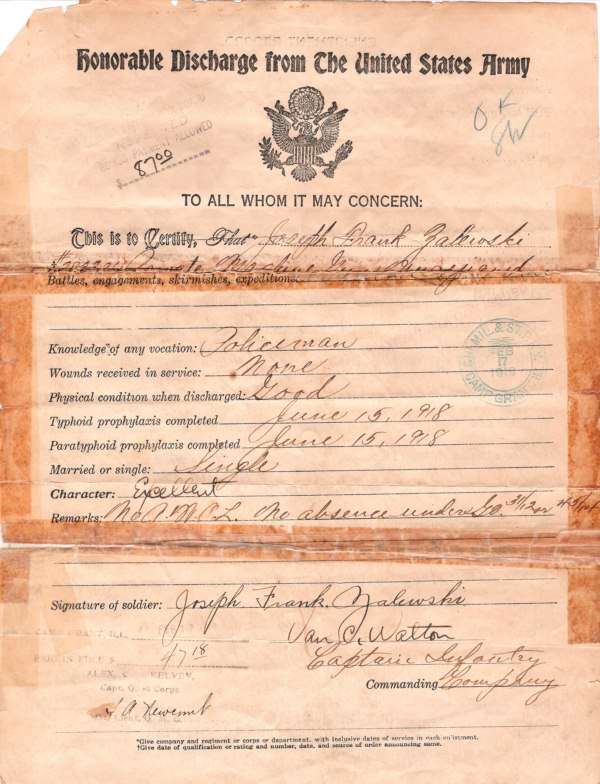 Honorable Discharge from The United States Army
PAYMENT ALLOWED
$ 87.00
OK
TO ALL WHOM IT MAY CONCERN:
This is to Certify, That* Joseph Frank Zalewski
Battles, engagements, skirmishes, expeditions
Knowledge of any vocation: Policeman
Wounds received in service: None
Physical condition when discharged: Good
Typhoid prophylaxis completed June 15, 1918
Paratyphoid prophylaxis completed June 15, 1918
Married or single: Single
Character: Excellent
Remarks: No A.W.O.L. No absence under G.O. 31/12 or 45/14
Signature of soldier: Joseph Frank Zalewski
Van C. Walton
CAMP GRANT, ILL.
Captain Infantry
PAID IN FULL $ 47 18
ALEX.
Commanding Company
Capt. Q. M. Corps
*Give company and regiment or corps or department, with inclusive dates of service in each enlistment.
†Give date of qualification or rating and number, date, and source of order announcing same.